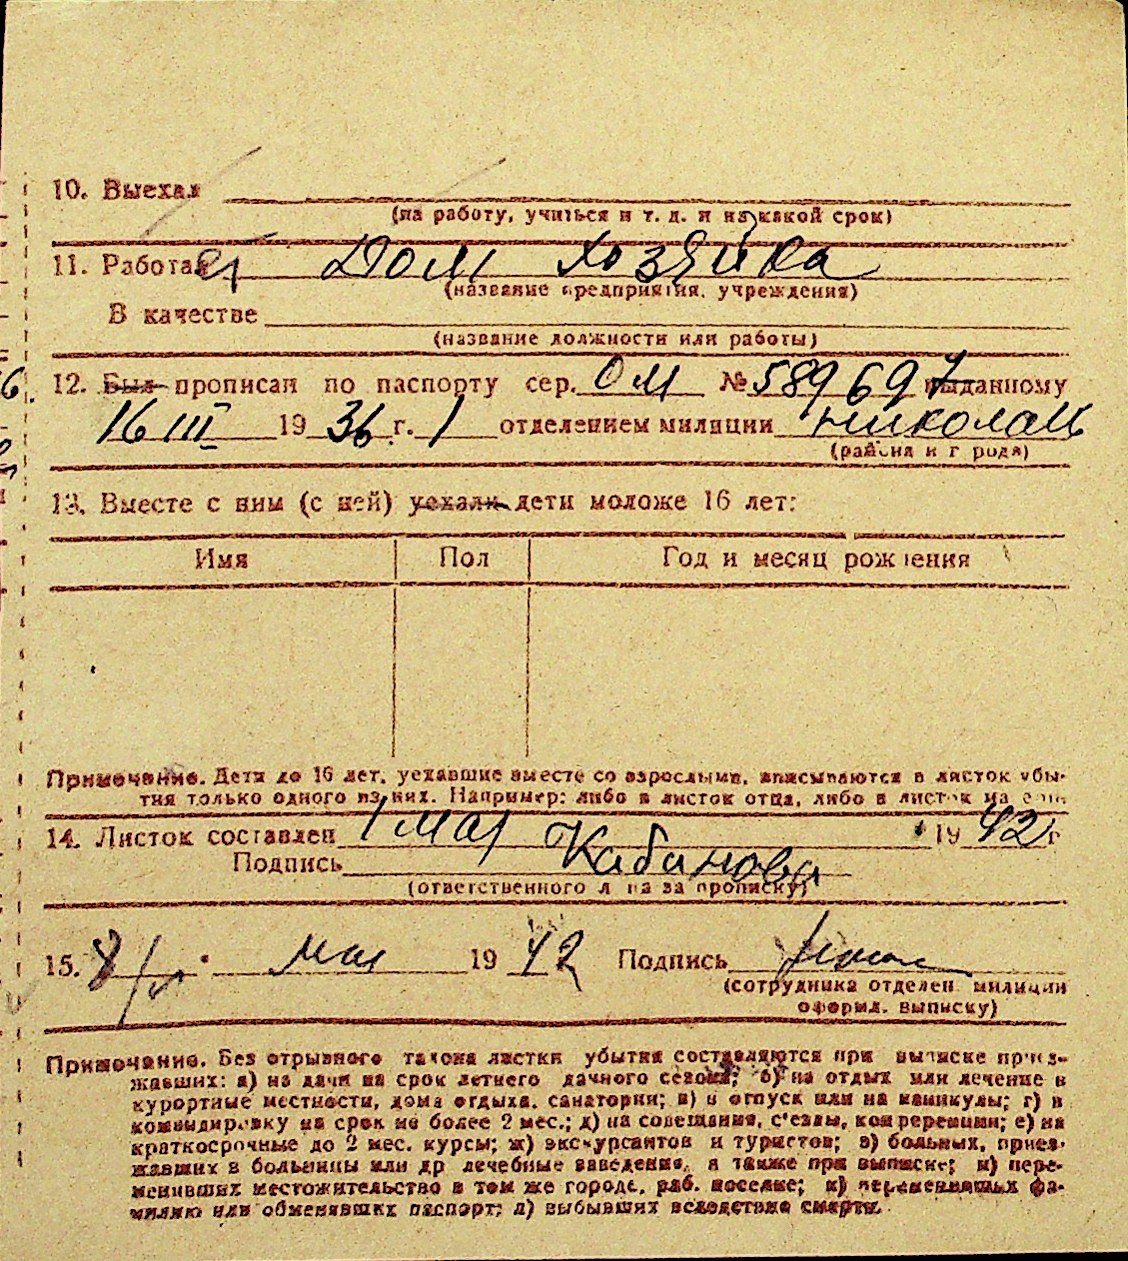 10. Выехал
(на работу, учиться и т. д. и на какой срок)
11. Работает Дом хозяйка
(название предприятия, учреждения)
В качестве
(название должности или работы)
12. Был прописан по паспорту сер. ОМ № 589697 выданному
16 III 1936 г. 1 отделением милиции Николаев
(района и города)
13. Вместе с ним (с ней) уехали дети моложе 16 лет:
Имя Пол Год и месяц рождения
Примечание. Дети до 16 лет, уехавшие вместе со взрослыми, вписываются в листок убы-
тия только одного из них. Например: либо в листок отца, либо в листок матери
14. Листок составлен 1 мая 1942 г
Подпись Кабанова
(ответственного лица за прописку)
15. 8/V мая 1942 Подпись
(сотрудника отделен. милиции
оформл. выписку)
Примечание. Без отрывного талона листки убытия составляются при выписке приез-
жавших: а) на дачи на срок летнего дачного сезона; б) на отдых или лечение в
курортные местности, дома отдыха, санатории; в) в отпуск или на каникулы; г) в
командировку на срок не более 2 мес.; д) на совещания, с'езды, конференции; е) на
краткосрочные до 2 мес. курсы; ж) экскурсантов и туристов; з) больных, приез-
жавших в больницы или др лечебные заведения, а также при выписке; и) пере-
менивших местожительство в том же городе, раб. поселке; к) переменивших фа-
милию или обменявших паспорт; л) выбывших вследствие смерти.